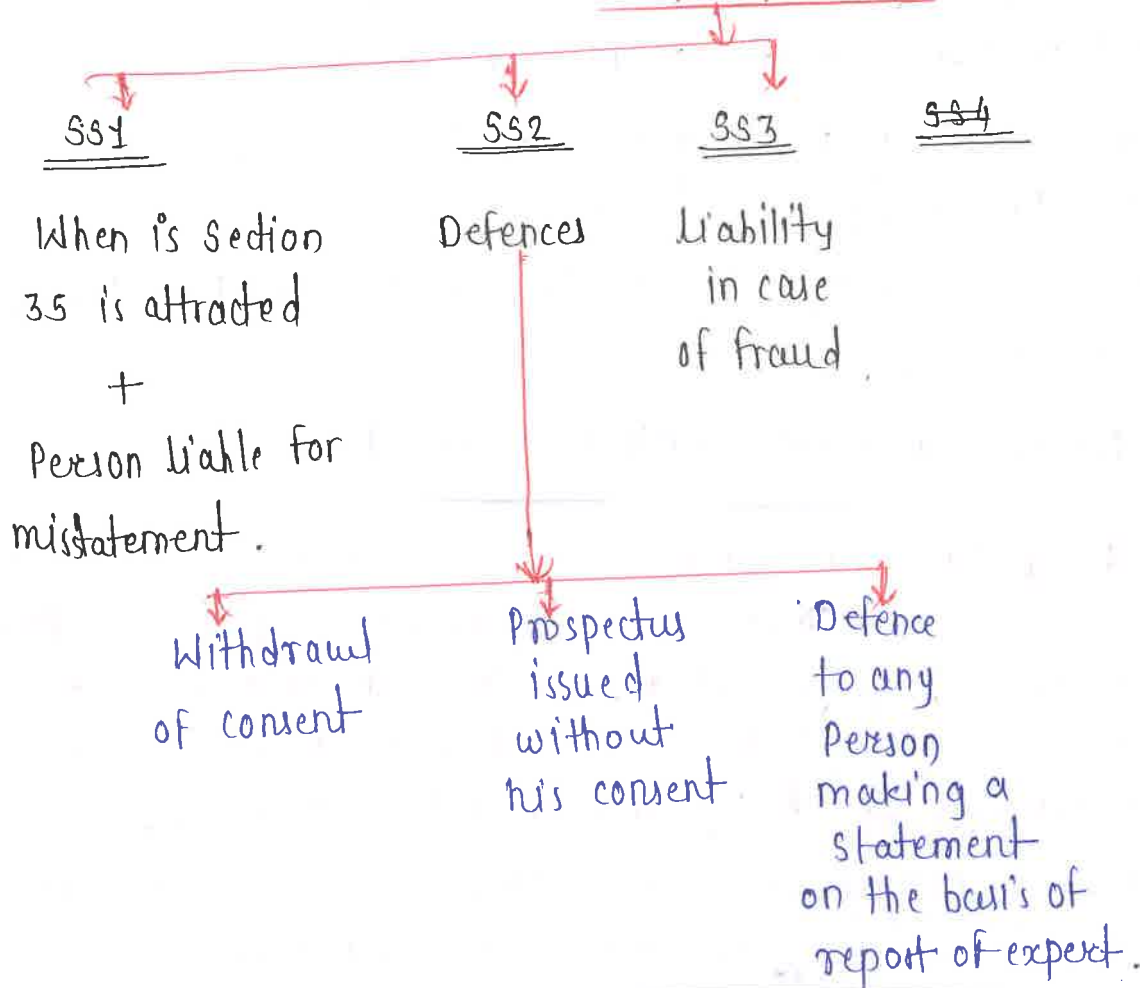 SS1
SS2
SS3
SS4
When is section
35 is attracted
+
Person liable for
misstatement.
Defences
Liability
in case
of fraud.
Withdrawl
of consent
Prospectus
issued
without
his consent
Defence
to any
Person
making a
statement
on the basis of
report of expert.